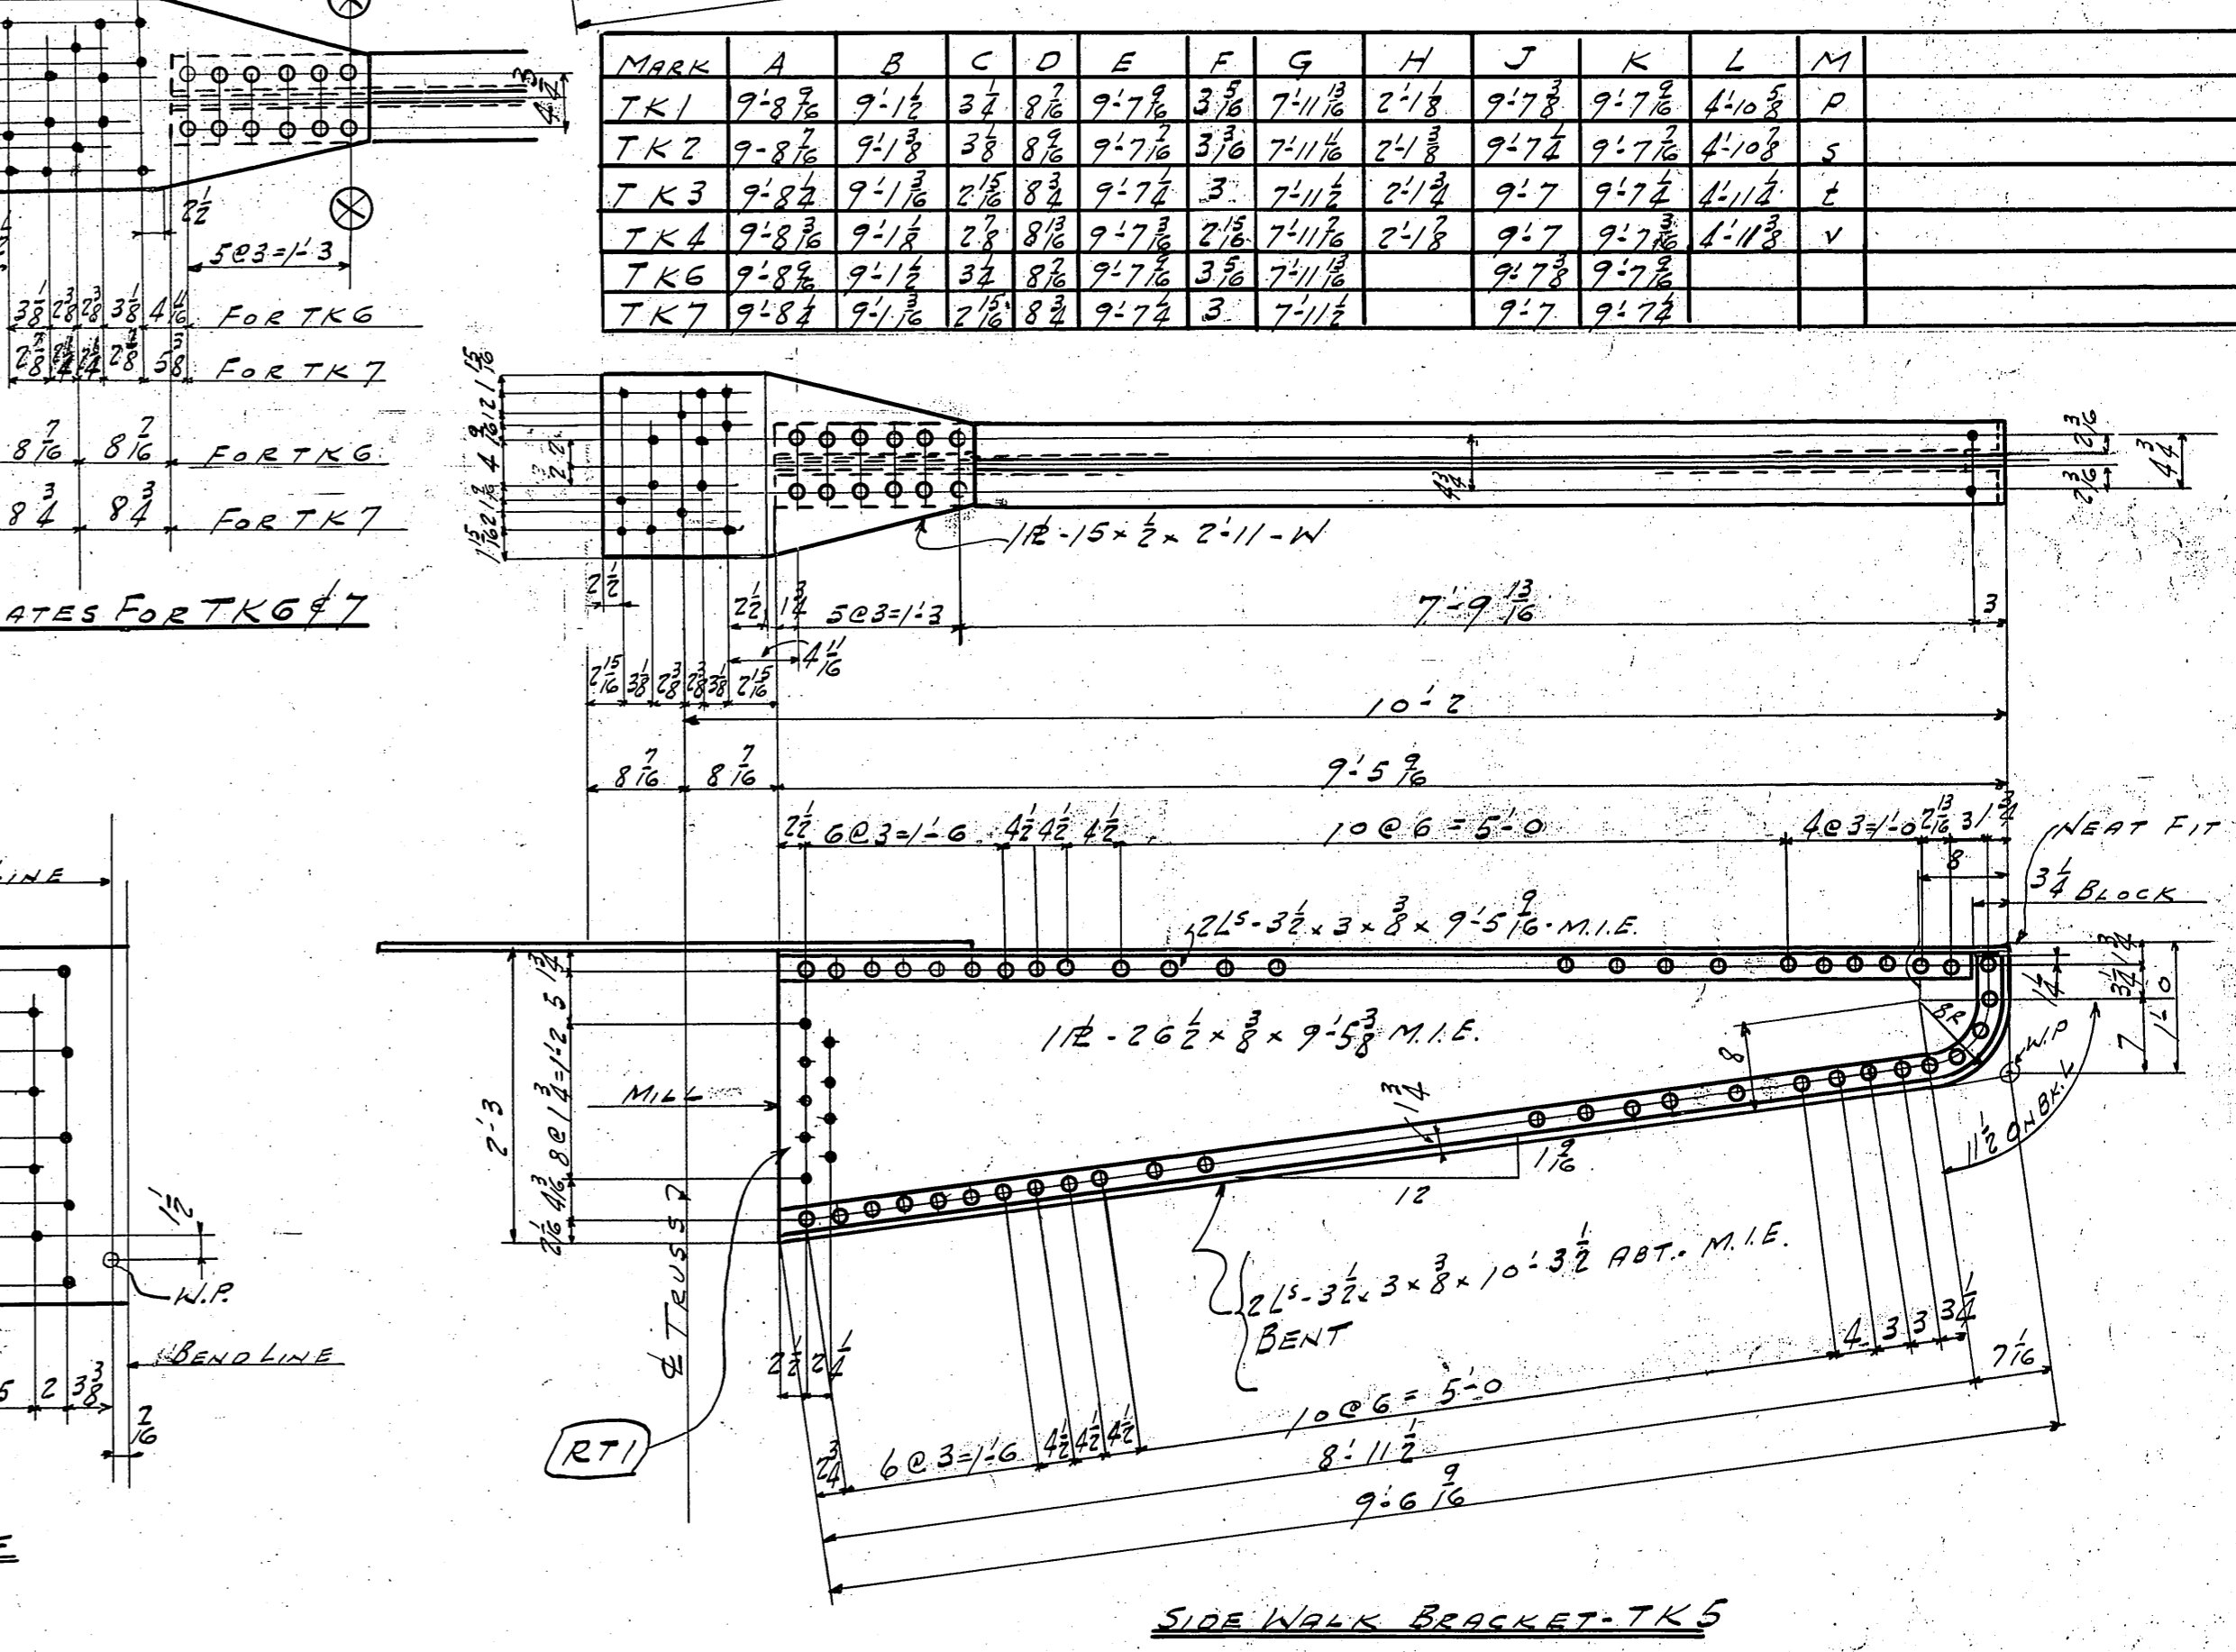 MARK A B C D E F G H J K L M
TK1 9'-8 9/16 9'-1 1/2 3 1/4 8 7/16 9'-7 9/16 3 5/16 7'-11 13/16 2'-1 1/8 9'-7 3/8 9'-7 9/16 4'-10 5/8 P
TK2 9-8 7/16 9'-1 3/8 3 1/8 8 9/16 9'-7 7/16 3 3/16 7'-11 11/16 2'-1 3/8 9'-7 1/4 9'-7 7/16 4'-10 7/8 S
TK3 9'-8 1/4 9'-1 3/16 2 15/16 8 3/4 9'-7 1/4 3 7'-11 1/2 2'-1 3/4 9'-7 9'-7 1/4 4'-11 1/4 t
TK4 9'-8 3/16 9'-1 1/8 2 7/8 8 13/16 9'-7 3/16 2 15/16 7'-11 7/16 2'-1 7/8 9'-7 9'-7 3/16 4'-11 3/8 V
TK6 9'-8 9/16 9'-1 1/2 3 1/4 8 7/16 9'-7 9/16 3 5/16 7'-11 13/16 9'-7 3/8 9'-7 9/16
TK7 9'-8 1/4 9'-1 3/16 2 15/16 8 3/4 9'-7 1/4 3 7'-11 1/2 9'-7 9'-7 1/4
4 3/4
2 1/2
5@3=1'-3
3 1/8 2 3/8 2 3/8 3 1/8 4 11/16 FOR TK6
2 7/8 2 1/4 2 1/4 2 7/8 5 3/8 FOR TK7
8 7/16 8 7/16 FOR TK6
8 3/4 8 3/4 FOR TK7
ATES FOR TK6 & 7
1 15/16
2
1
9/16
4
4
9/16
1
2
1 15/16
2
2
4 3/4
2 3/16
2 3/16
4 3/4
1 PL-15 x 1/2 x 2'-11-W
2 1/2 2 1/2 1 3/4 5@3=1'-3 7'-9 13/16 3
4 11/16
2 15/16 3 1/8 2 3/8 2 3/8 3 1/8 2 15/16
10'-2
8 7/16 8 7/16 9'-5 9/16
2 1/2 6@3=1'-6 4 1/2 4 1/2 4 1/2 10@6=5'-0 4@3=1'-0 2 13/16 3 1 3/4
NEAT FIT
8
3 1/4 BLOCK
2Ls-3 1/2 x 3 x 3/8 x 9'-5 9/16-M.I.E.
1 PL-26 1/2 x 3/8 x 9'-5 3/8 M.I.E.
1 3/4
5
8@1 3/4=1'-2
4 3/16
2 1/16
2'-3
MILL
1 1/4
1 3/4
3 1/4
7
1'-0
8R
W.P
8
1 3/4
1 9/16
12
11 1/2 ON BK.V
2Ls-3 1/2 x 3 x 3/8 x 10'-3 1/2 ABT. M.I.E.
BENT
℄ TRUSS 7
RT1
2 1/2 2 1/4
2 3/4 6@3=1'-6 4 1/2 4 1/2 4 1/2 10@6=5'-0 4 3 3 3 1/4
8'-11 1/2 7 1/16
9'-6 9/16
LINE
1 1/2
W.P.
BEND LINE
5 2 3 3/8
7/16
E
SIDE WALK BRACKET-TK5